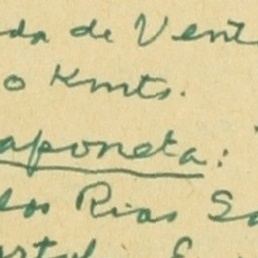 da de Vent
o Kmts.
aponeta:
los Rios Sa